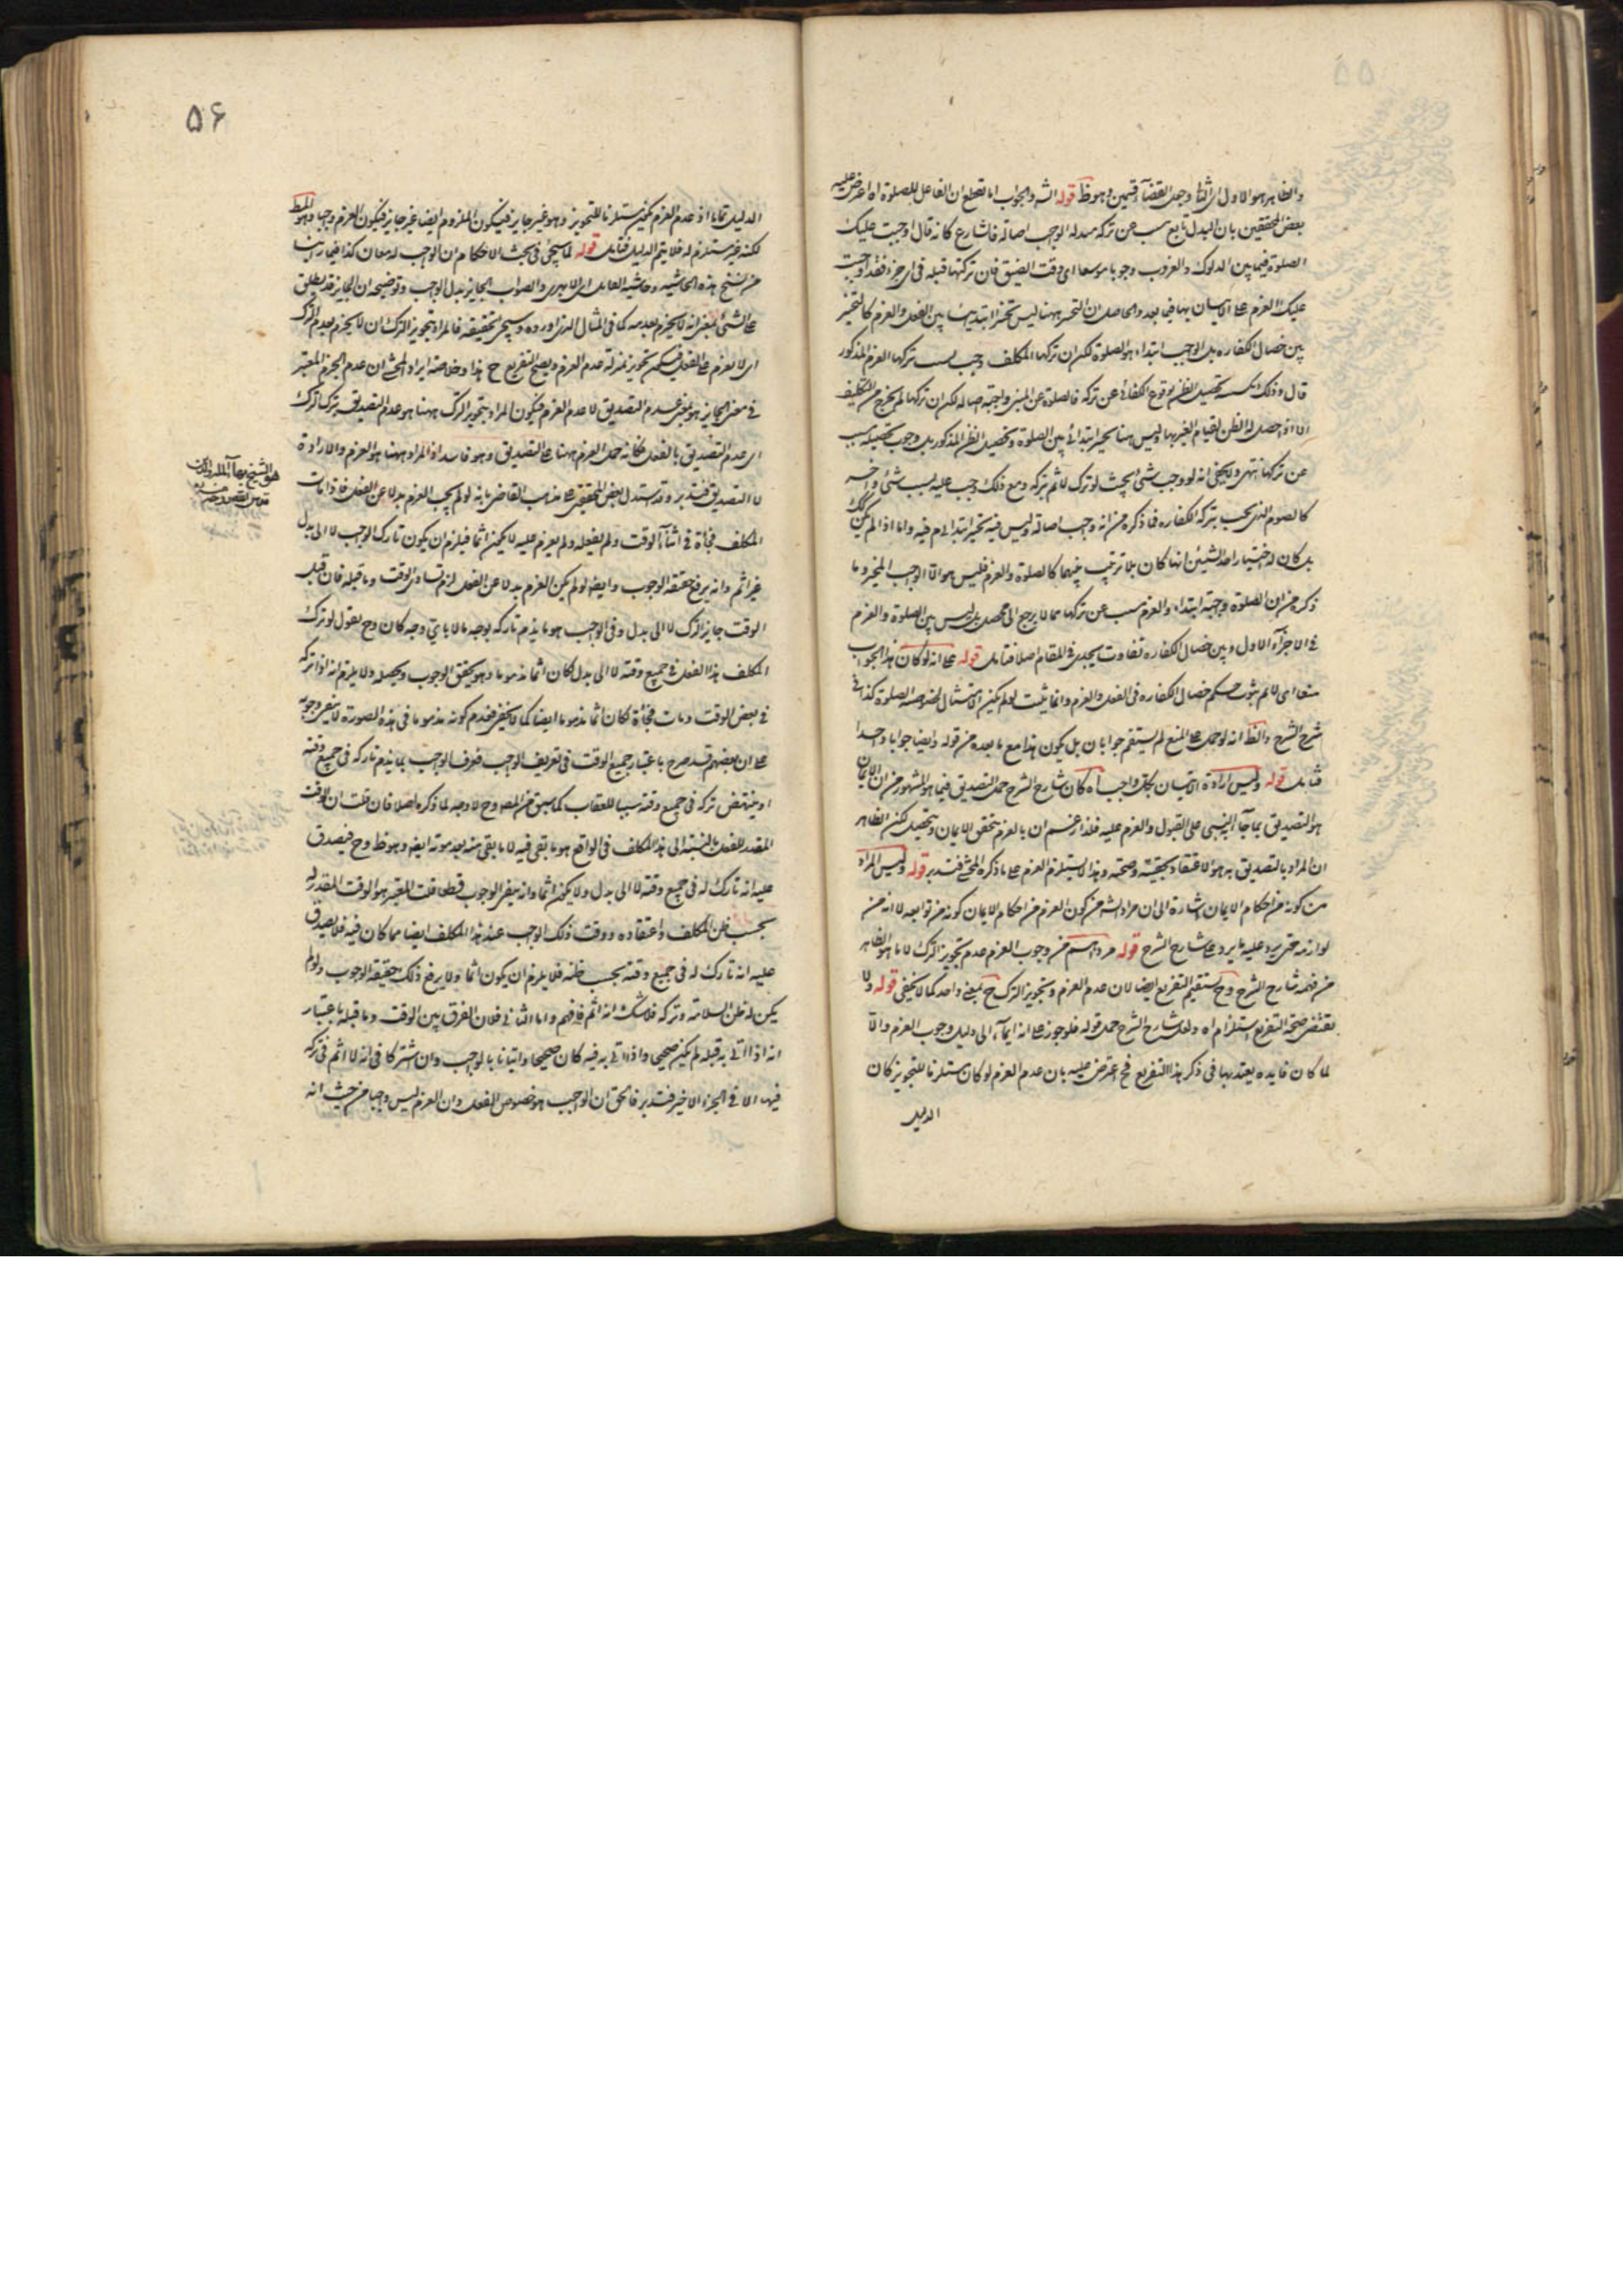 والظاهر هو الاول لا الثانی وجعل القضاء قسمین وهو ظ قوله الش والجواب انا نقطع ان الفاعل للصلوة اه اعترض علیه
بعض المحققین بان البدل تابع مسبب عن ترکه مبدله الواجب اصالة فالشارع کانه قال اوجبت علیک
الصلوة فیما بین الدلوک والغروب وجوبا موسعا ای وقت الضیق فان ترکتها قبله فی ای جزء فقد اوجبت
علیک العزم علی الاتیان بها فیما بعد والحاصل ان التخییر ههنا لیس تخییرا ابتدائیا بین الفعل والعزم کالتخییر
بین خصال الکفاره بل الواجب ابتداء هو الصلوة لکن ان ترکها المکلف وجب بسبب ترکها العزم المذکور
قال وذلک تحصیل الظن بوقوع الکفائی عن ترکه فالصلوة عن المیت واجبة اصالة لکن ان ترکها لم یخرج من التکلیف
الا اذا حصل له الظن لقیام الغیر بها ولیس هنا تخییر ابتدائی بین الصلوة وتحصیل الظن المذکور بل وجوب تحصیله مسبب
عن ترکها انتهی ولا یخفی انه لو وجب شئ بحیث لو ترک لاثم ترکه ومع ذلک وجب علیه بسبب شئ واخر
کالصوم الذی یجب بترکه الکفاره فما ذکره من انه وجب اصالة ولیس فیه تخییر ابتدائی م فیه واما اذا لم یکن کک
بل کان له اختیار احد الشیئین ایها کان بلا ترتیب بینهما کالصلوة والعزم فلیس هو الا الواجب المخیر وما
ذکره من ان الصلوة واجبة ابتداء والعزم مسبب عن ترکها مما لا یرجع الی محصل بل لیس بین الصلوة والعزم
فی الاجزاء الاول وبین خصال الکفاره تفاوت یجدی فی المقام اصلا فتامل قوله علی انه لو کان هذا الجواب
منعا ای لا نم ثبوت حکم خصال الکفاره فی الفعل والعزم وانما یثبت لو لم یکن الامتثال لخصوصیة الصلوة کذا فی
شرح الشرح والظ انه لو حمل علی المنع لم یستقم جوابان بل یکون هذا مع ما بعده من قوله وایضا جوابا واحدا
فتامل قوله ولیس ارادة الاتیان بکل واجب اه کان شارح الشرح حمل التصدیق فیما هو المشهور من ان الایمان
هو التصدیق بما جاء به النبی علی القبول والعزم علیه فلذا زعم ان بالعزم یتحقق الایمان ویحصل لکن الظاهر
ان المراد بالتصدیق به هو الاعتقاد بحقیته وصحته وهذا لا یستلزم العزم علی ما ذکره المحشی فتدبر قوله ولیس المراد
من کونه من احکام الایمان اشارة الی ان مراد الش من کون العزم من احکام الایمان کونه من توابعه لا انه من
لوازمه حتی یرد علیه ما یرد علی شارح الشرح قوله مرادهم من وجوب العزم عدم تجویز الترک لا ما هو الظاهر
من فهمه شارح الشرح وح یستقیم التفریع ایضا لان عدم العزم وتجویز الترک ح بمعنی واحد کما لا یخفی قوله ولا
یقتضی صحة التفریع استلزام اه ولعل شارح الشرح حمل قوله فلو جوز علی انه ایماء الی دلیل وجوب العزم والا
لما کان فایده یعتد بها فی ذکر هذا التفریع فح اعترض علیه بان عدم العزم لو کان مستلزما للتجویز کان
الدلیل
۵۶
الدلیل تماما اذ عدم العزم یکون مستلزما للتجویز وهو غیر جایز فیکون الملزوم ایضا غیر جایز فیکون العزم واجبا وهو المط
لکنه غیر مستلزم له فلا یتم الدلیل فتامل قوله لما سیجئ فی بحث الاحکام ان الواجب له معان کذا فیما راینا
من نسخ هذه الحاشیه وحاشیه الفاضل الابهری والصواب الجایز بدل الواجب وتوضیحه ان الجایز قد یطلق
علی الشئ بمعنی انه لا یجزم بعدمه کما فی المثال الذی اورده وسیجئ تحقیقه فالمراد بتجویز الترک ان لا یجزم بعدم الترک
ای لا یعزم علی الفعل فیکون تجویز بمنزلة عدم العزم ویصح التفریع ح هذا وخلاصة ایراد المحشی ان عدم الجزم المعتبر
فی معنی الجایز هو بمعنی عدم التصدیق لا عدم العزم فیکون المراد بتجویز الترک ههنا هو عدم التصدیق بترک الترک
ای عدم التصدیق بالفعل فکانه حمل العزم ههنا علی التصدیق وهو فاسد اذ المراد ههنا هو العزم والارادة
لا التصدیق فتدبر وقد استدل بعض المحققین علی مذهب القاضی بانه لو لم یجب العزم بدلا عن الفعل فاذا مات
المکلف فجأة فی اثناء الوقت ولم یفعله ولم یعزم علیه لا یکون اثما فیلزم ان یکون تارک الواجب لا الی بدل
غیر اثم وانه یرفع حقیقة الوجوب وایضا لو لم یکن العزم بدلا عن الفعل لزم تساوی الوقت وما قبله فان قبل
الوقت جایز الترک لا الی بدل وفی الواجب هو ما یذم تارکه بوجه ما لا بای وجه کان وح یقول لو ترک
المکلف هذا الفعل فی جمیع وقته لا الی بدل لکان اثما مذموما وهو یحقق الوجوب ویحصله ولا یلزم انه اذا ترکه
فی بعض الوقت ومات فجأة لکان اثما مذموما ایضا کما لا یخفی فعدم کونه مذموما فی هذه الصورة لا ینفی وجوبه
علی ان بعضهم قد صرح باعتبار جمیع الوقت فی تعریف الواجب فعرف الواجب بما یذم تارکه فی جمیع وقته
او ینتهض ترکه فی جمیع وقته سببا للعقاب کما سبق من المص وح لا وجه لما ذکره اصلا فان قلت ان الوقت
المقدر للفعل بالنسبة الی هذا المکلف فی الواقع هو ما بقی فیه لا ما بقی منه بعد موته ایضا وهو ظ وح فیصدق
علیه انه تارک له فی جمیع وقته لا الی بدل ولا یکون اثما وانه ینفی الوجوب قطعا قلت المعتبر هو الوقت المقدر له
بحسب ظن المکلف واعتقاده ووقت ذلک الواجب عند هذا المکلف ایضا مما کان فیه فلا یصدق
علیه انه تارک له فی جمیع وقته بحسب ظنه فلا یلزم ان یکون اثما ولا یرفع ذلک حقیقة الوجوب ولو لم
یکن له ظن السلامة وترکه فلا شک انه اثم فافهم واما الثانی فلان الفرق بین الوقت وما قبله باعتبار
انه اذا اتی به قبله لم یکن صحیحا واذا اتی به فیه کان صحیحا واتیانا بالواجب وان اشترکا فی انه لا اثم فی ترکه
فیهما الا فی الجزء الاخیر فتدبر فالحق ان الواجب هو خصوص الفعل وان العزم لیس واجبا من حیث انه
هو الشیخ بهاء الملة والدین
قدس الله روحه